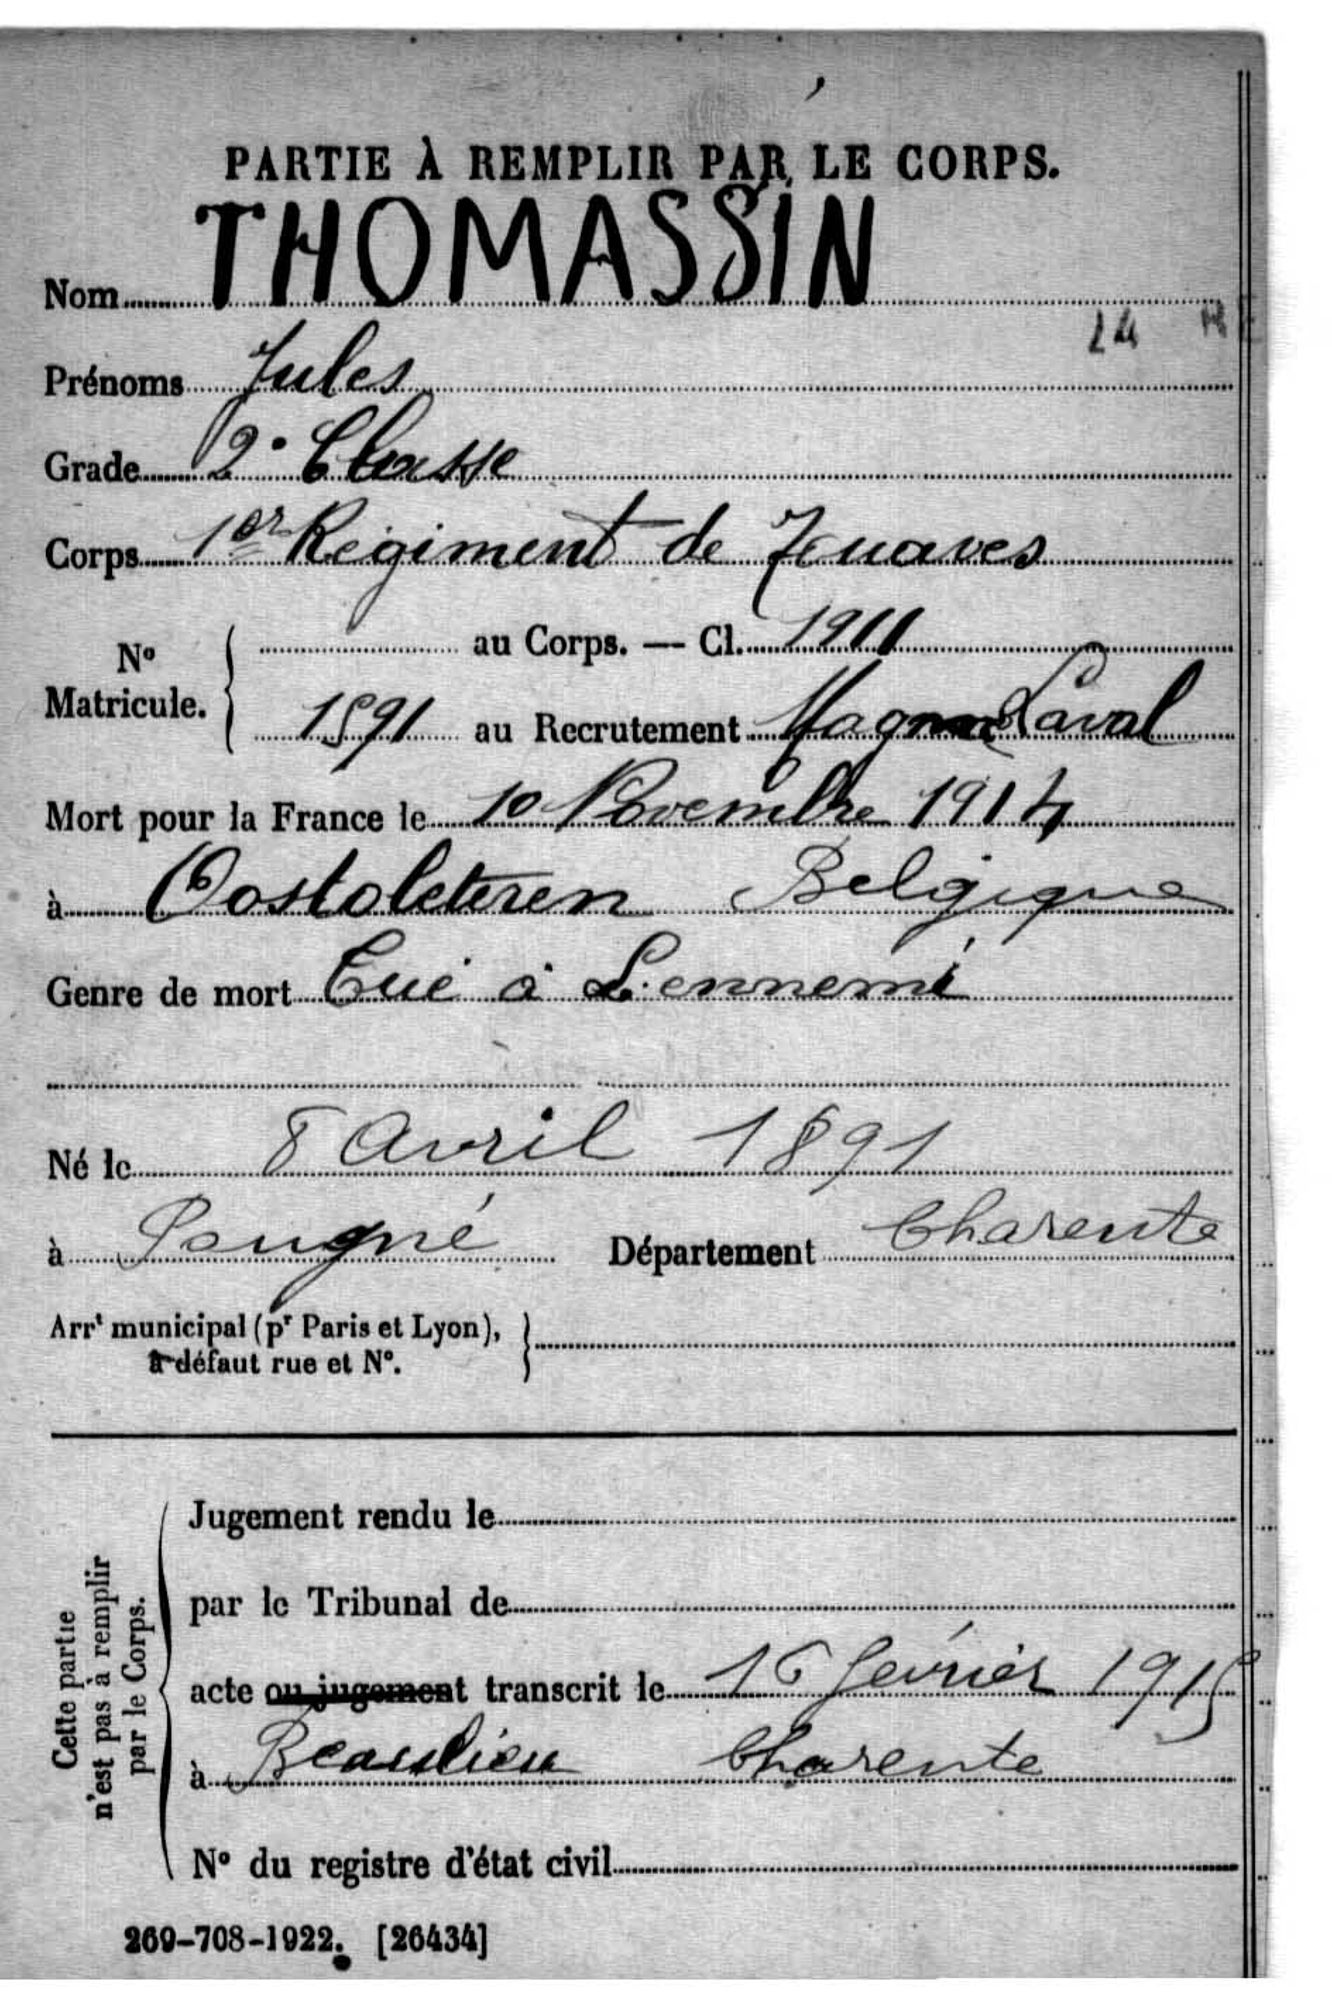 PARTIE À REMPLIR PAR LE CORPS.
Nom THOMASSIN
24
Prénoms Jules
Grade 2e Classe
Corps 1er Régiment de Zouaves
N° Matricule. au Corps. — Cl. 1911
1591 au Recrutement Magnac Laval
Mort pour la France le 10 Novembre 1914
à Oostoleteren Belgique
Genre de mort Tué à L'ennemi
Né le 8 Avril 1891
à Pougné Département Charente
Arrt municipal (pr Paris et Lyon),
à défaut rue et N°.
Cette partie
n'est pas à remplir
par le Corps.
Jugement rendu le
par le Tribunal de
acte ou jugement transcrit le 16 février 1915
à Beaulieu Charente
N° du registre d'état civil
269-708-1922. [26434]